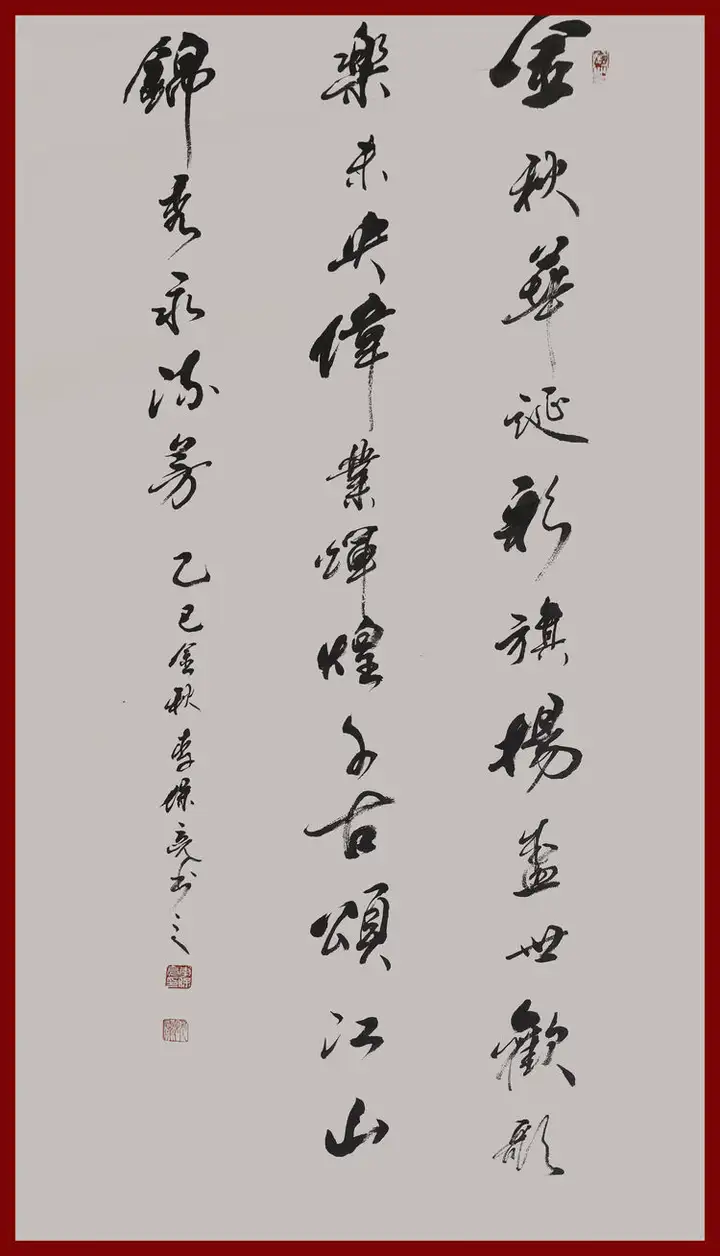 金秋華誕彩旗揚盛世歡歌
樂未央偉業煇煌千古頌江山
錦秀永流芳 乙巳金秋李保亮书之